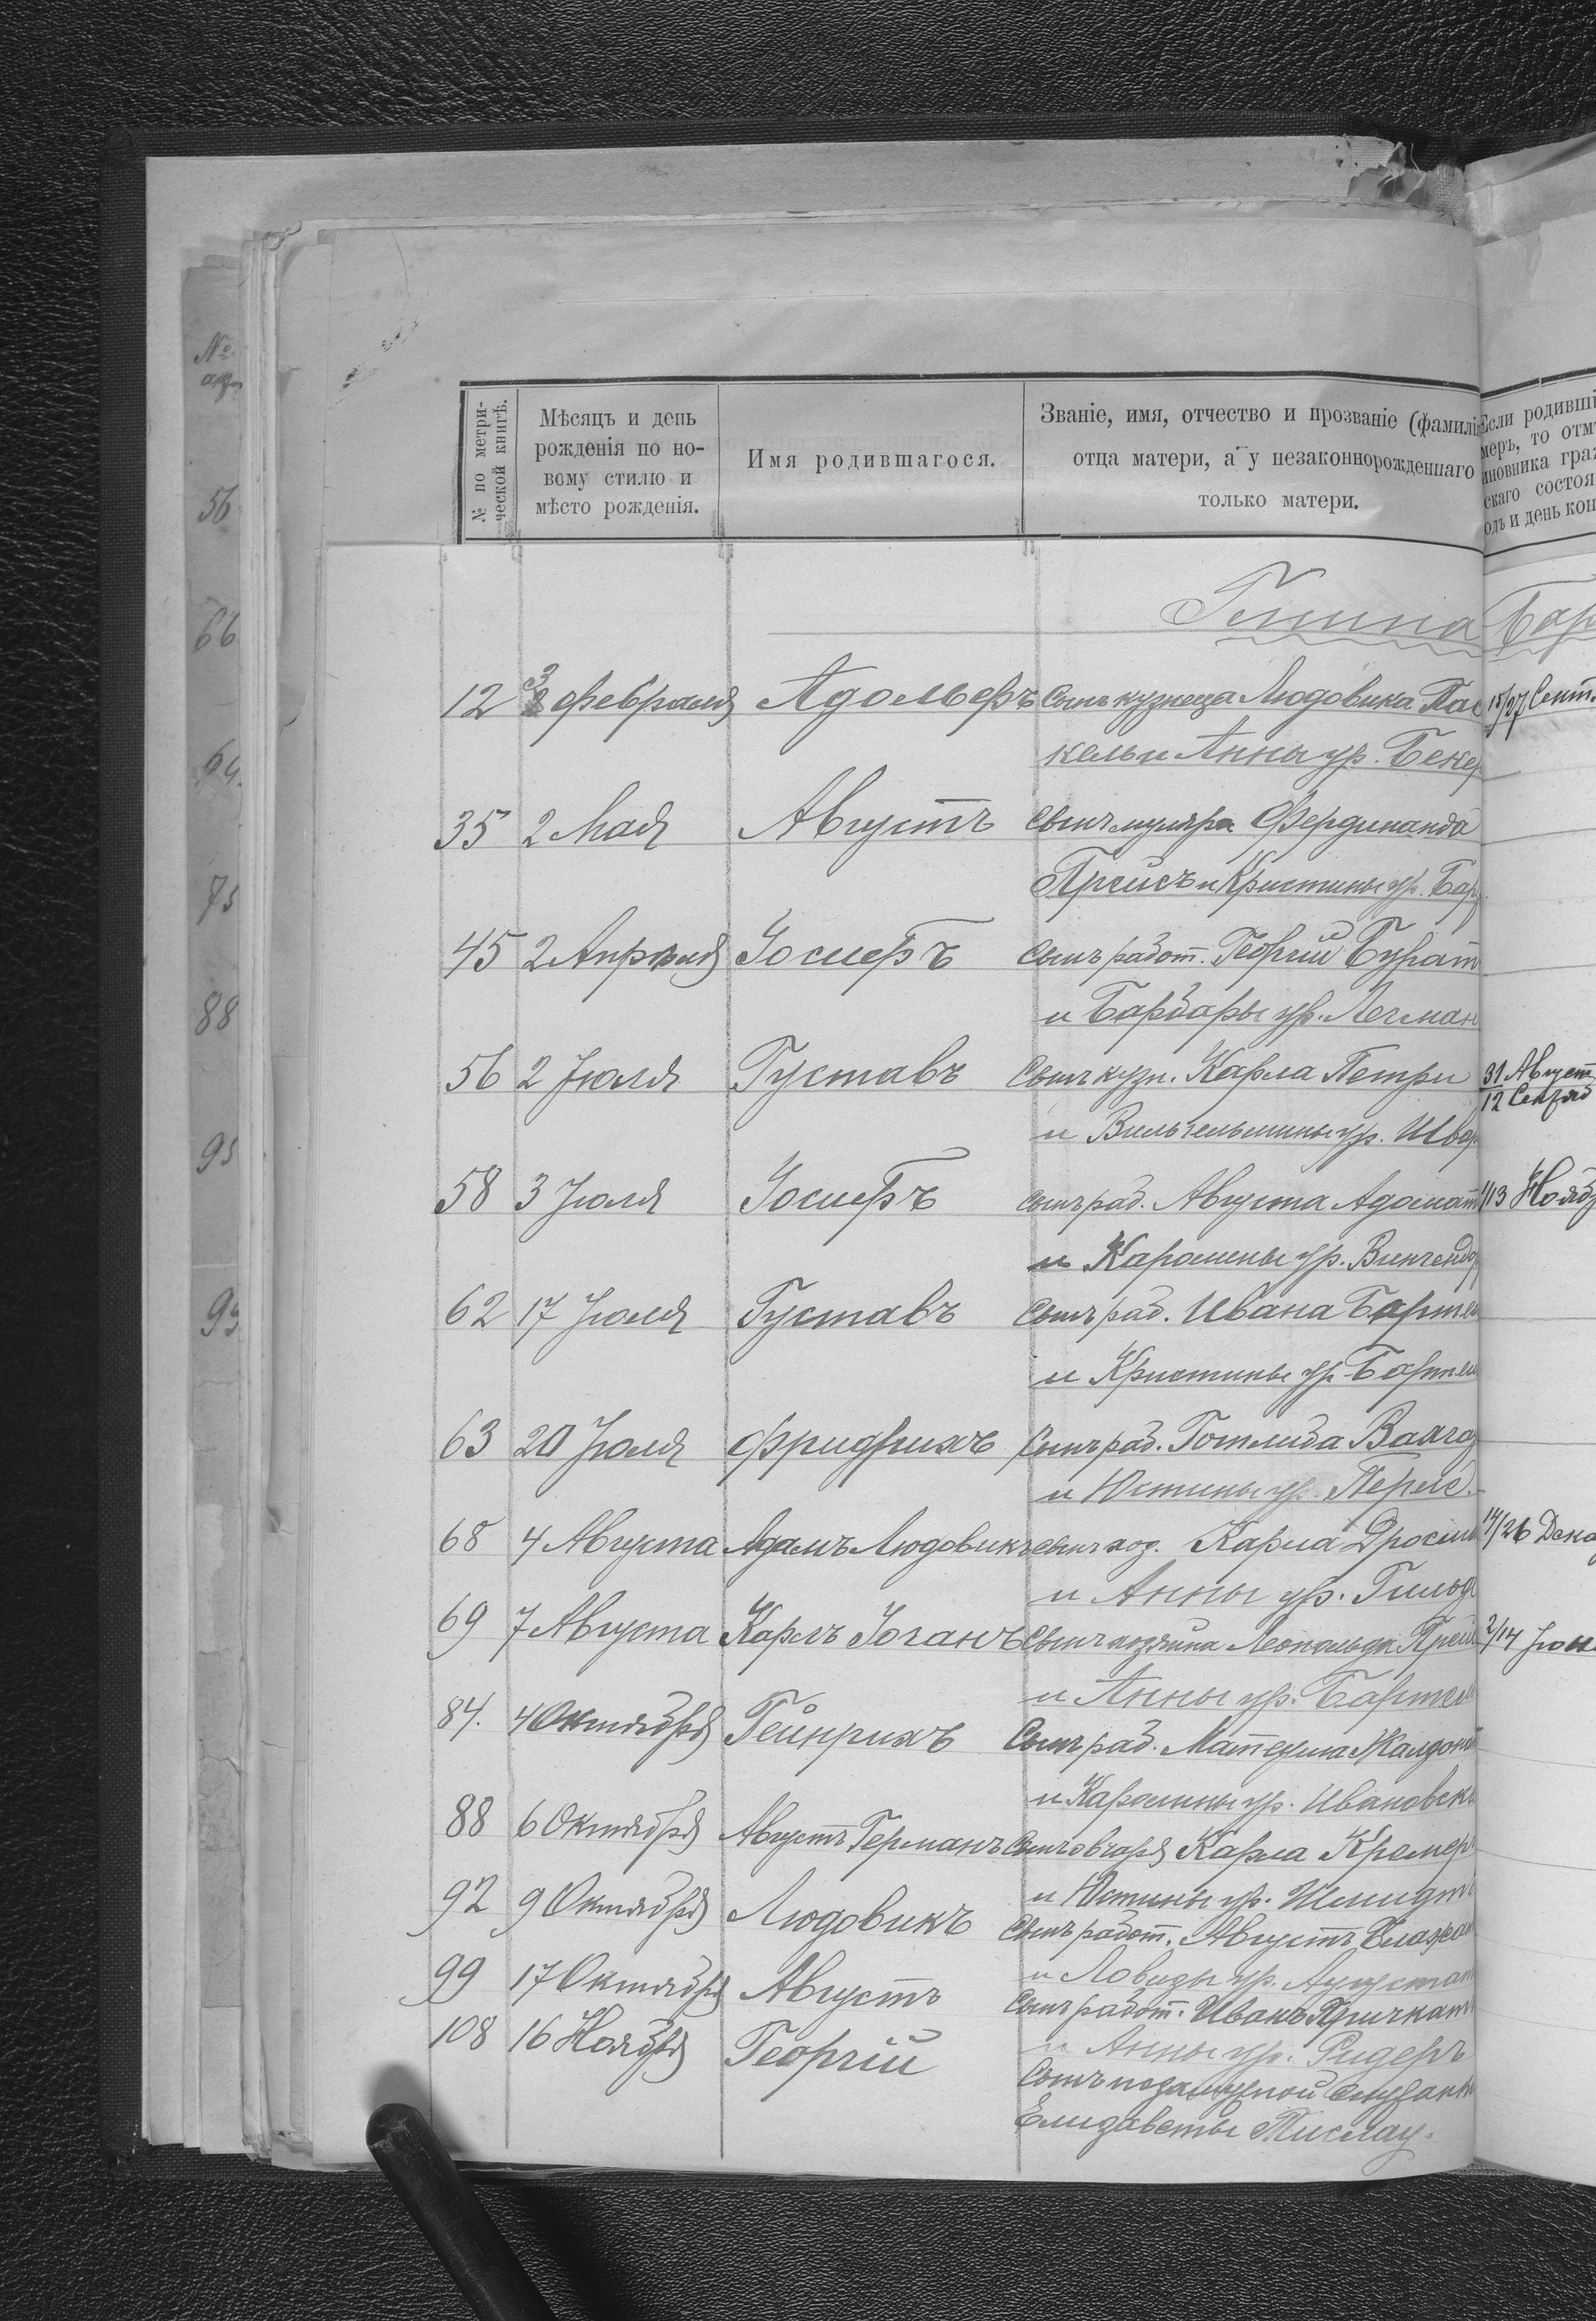 №
56
66
94
75
88
95
99
№ по метрической книгѣ.
Мѣсяцъ и день
рожденія по но-
вому стилю и
мѣсто рожденія.
Имя родившагося.
Званіе, имя, отчество и прозваніе (фамилія
отца матери, а у незаконнорожденнаго
только матери.
Если родивші
меръ, то отмѣ
иновника граж
скаго состоя
одъ и день кон
Гмина Бар
12 3 февраля Адольфъ Сынъ кузнеца Людовика Пас 15/27 Сент.
кель и Анны ур. Бекер
35 2 Мая Августъ Сынъ муляра Фердинанда
Прейсъ и Кристины ур. Бар
45 2 Апрѣля Іосифъ Сынъ работ. Георгій Бурат
и Барбары ур. Лечман
56 2 Іюля Густавъ Сынъ кузн. Карла Петри 31 Август
12 Сентяб
и Вильгельмины ур. Швар
58 3 Іюля Іосифъ Сынъ раб. Августа Адомат 1/13 Нояб
и Каролины ур. Винчендор
62 17 Іюля Густавъ Сынъ раб. Ивана Бартел
и Кристины ур. Бартел
63 20 Іюля Фридрихъ Сынъ раб. Готлиба
и Юстины ур.
68 4 Августа Адамъ Людовикъ сынъ хоз. Карла 14/26 Дека
и Анны ур. Гильд
69 7 Августа Карлъ Іоганъ Сынъ хозяина Леопольда Прей 2/14 Іюн
и Анны ур. Бартел
84. 4 Октября Гейнрихъ Сынъ раб. Матеуша Жалдонат
и Каролины ур. Ивановск
88 6 Октября Августъ Германъ Сынъ овчаря Карла Кремеръ
и Юстины ур. Шмидтъ
92 9 Октября Людовикъ Сынъ работ. Августъ
и ур.
99 17 Октября Августъ Сынъ работ. Иванъ
и Анны ур. Ридеръ
108 16 Ноября Георгій Сынъ незамужной служан
Елизаветы Тислау.